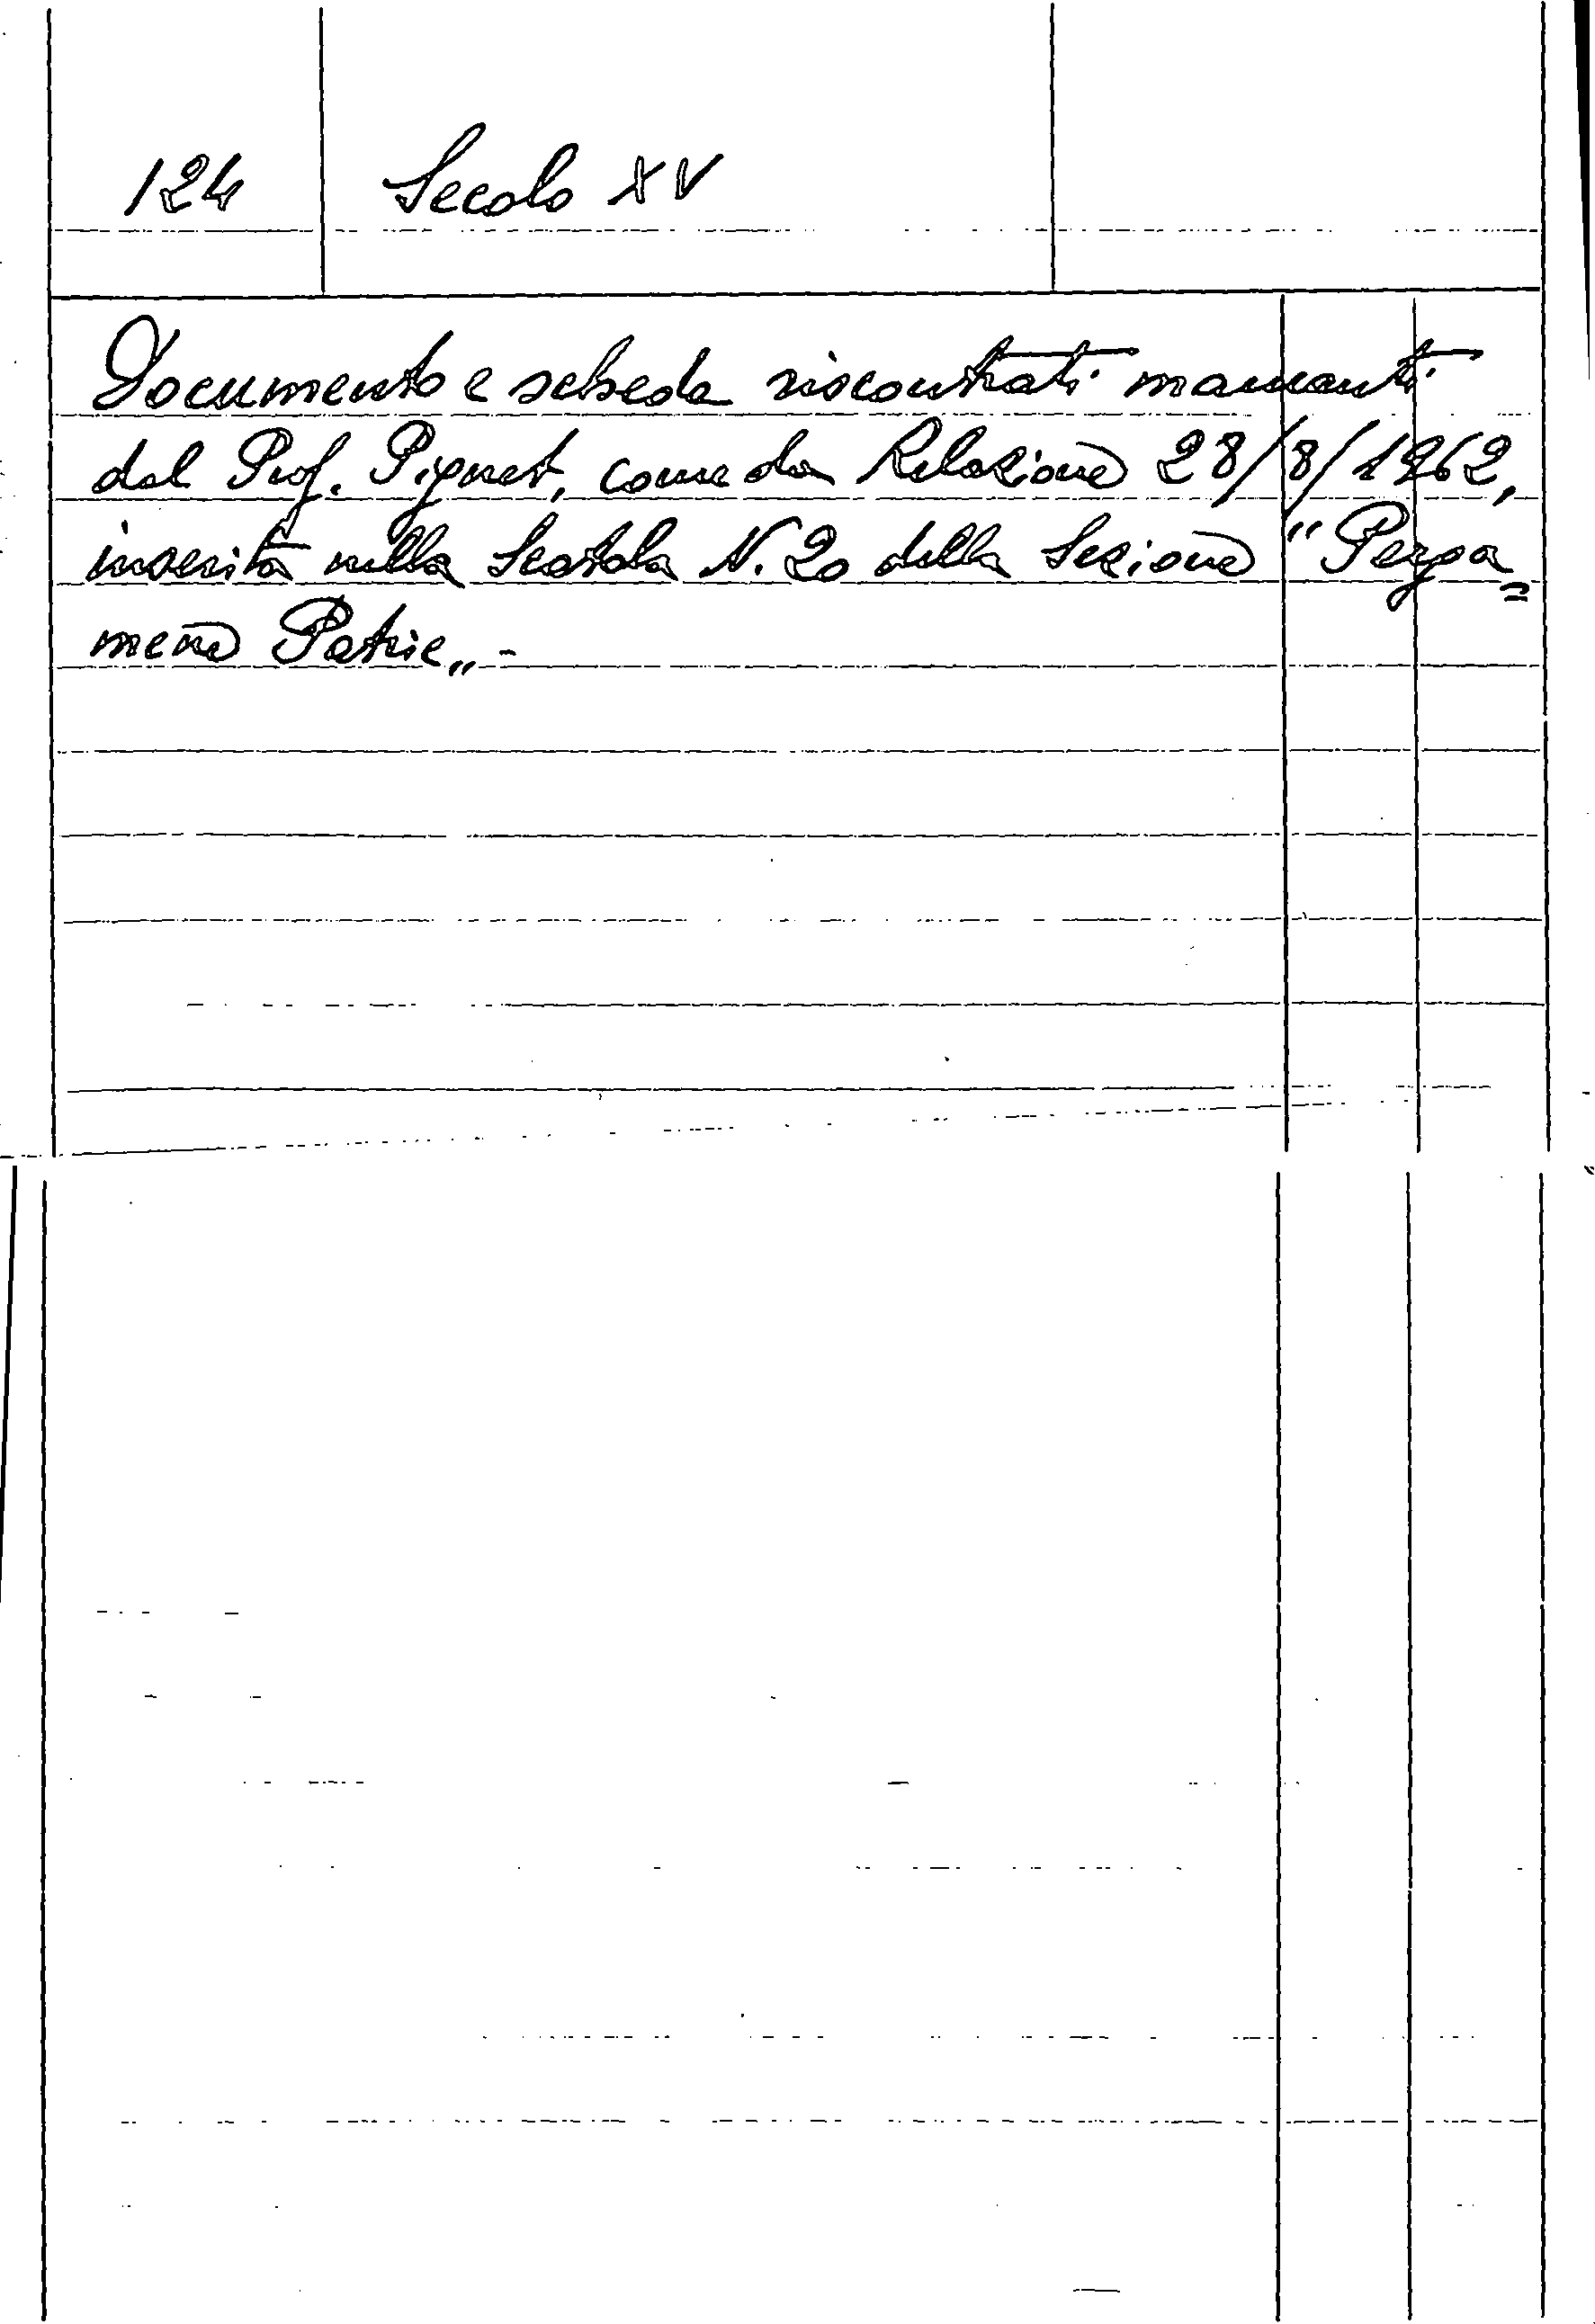 124 Secolo XV
Documento e scheda riscontrati mancanti
dal Prof. Pignet, come da Relazione 28/8/1962,
inserita nella Scatola N. 20 della Sezione "Perga=
mene Patrie„ -